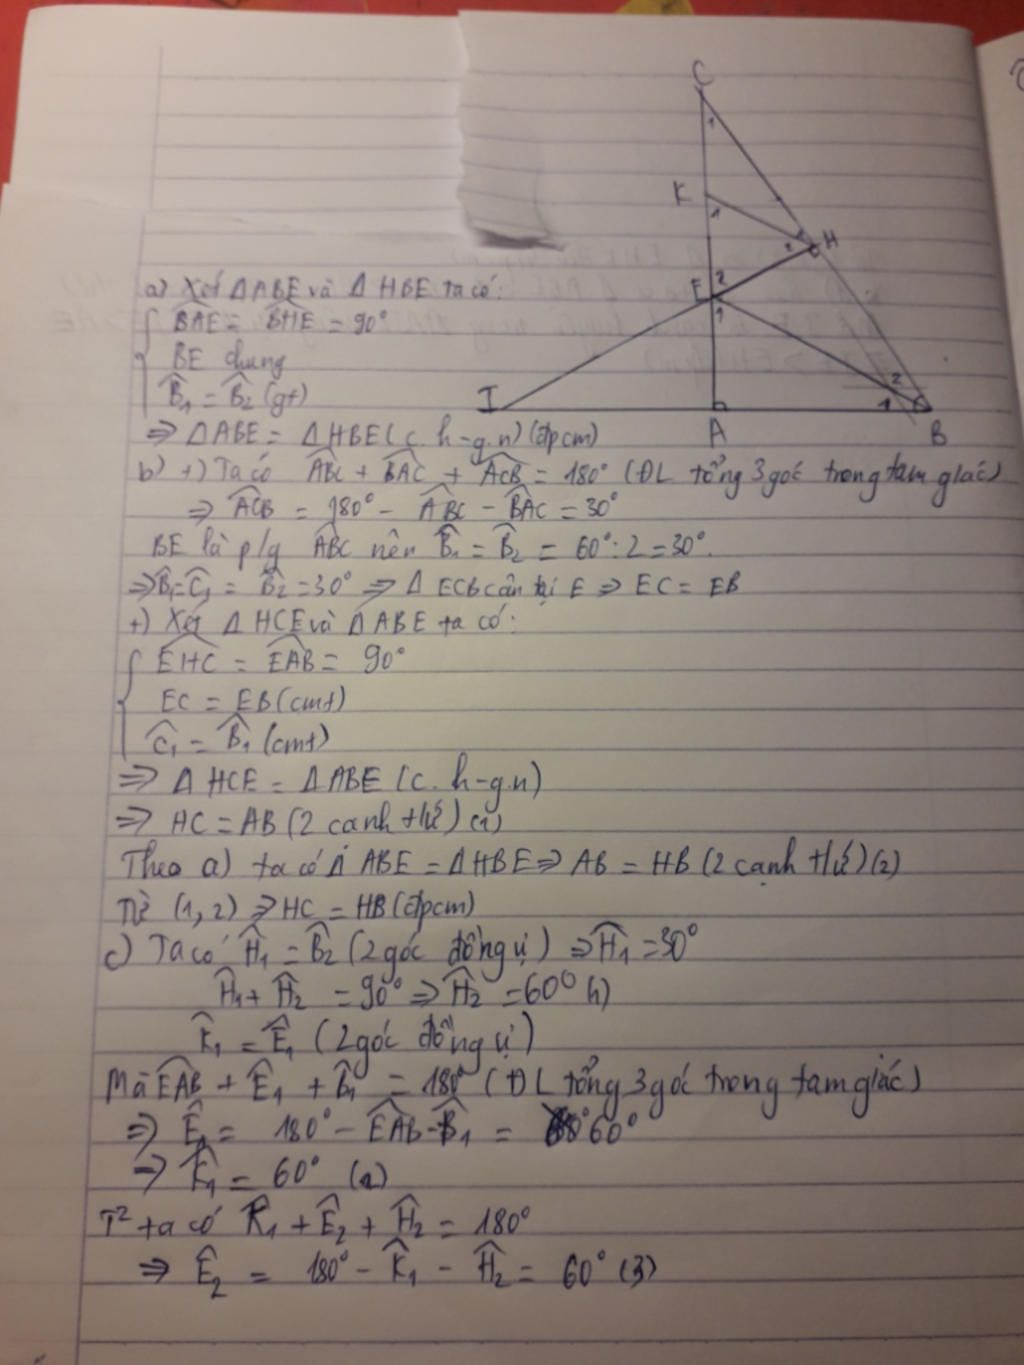 C
1
K
1
H
1
2
E
2
1
I
A
2
1
B
a) Xét ΔABE và Δ HBE ta có:
BAE = BHE = 90°
BE chung
B₁ = B₂ (gt)
=> ΔABE = ΔHBE (c.h-g.n) (đpcm)
b) +) Ta có ABC + BAC + ACB = 180° (ĐL tổng 3 góc trong tam giác)
=> ACB = 180° - ABC - BAC = 30°
BE là p/g ABC nên B₁ = B₂ = 60° : 2 = 30°.
=> B₁ = C₁ = B₂ = 30° => Δ ECB cân tại E => EC = EB
+) Xét Δ HCE và Δ ABE ta có:
EHC = EAB = 90°
EC = EB (cmt)
C₁ = B₁ (cmt)
=> Δ HCE = ΔABE (c.h-g.n)
=> HC = AB (2 cạnh tứ) (1)
Theo a) ta có Δ ABE = ΔHBE => AB = HB (2 cạnh tứ) (2)
Từ (1, 2) => HC = HB (đpcm)
c) Ta có H₁ = B₂ (2 góc đồng vị) => H₁ = 30°
H₁ + H₂ = 90° => H₂ = 60° (1)
K₁ = E₁ (2 góc đồng vị)
Mà EAB + E₁ + B₁ = 180° (ĐL tổng 3 góc trong tam giác)
=> E₁ = 180° - EAB - B₁ = 60°
=> K₁ = 60° (2)
T² ta có K₁ + E₂ + H₂ = 180°
=> E₂ = 180° - K₁ - H₂ = 60° (3)